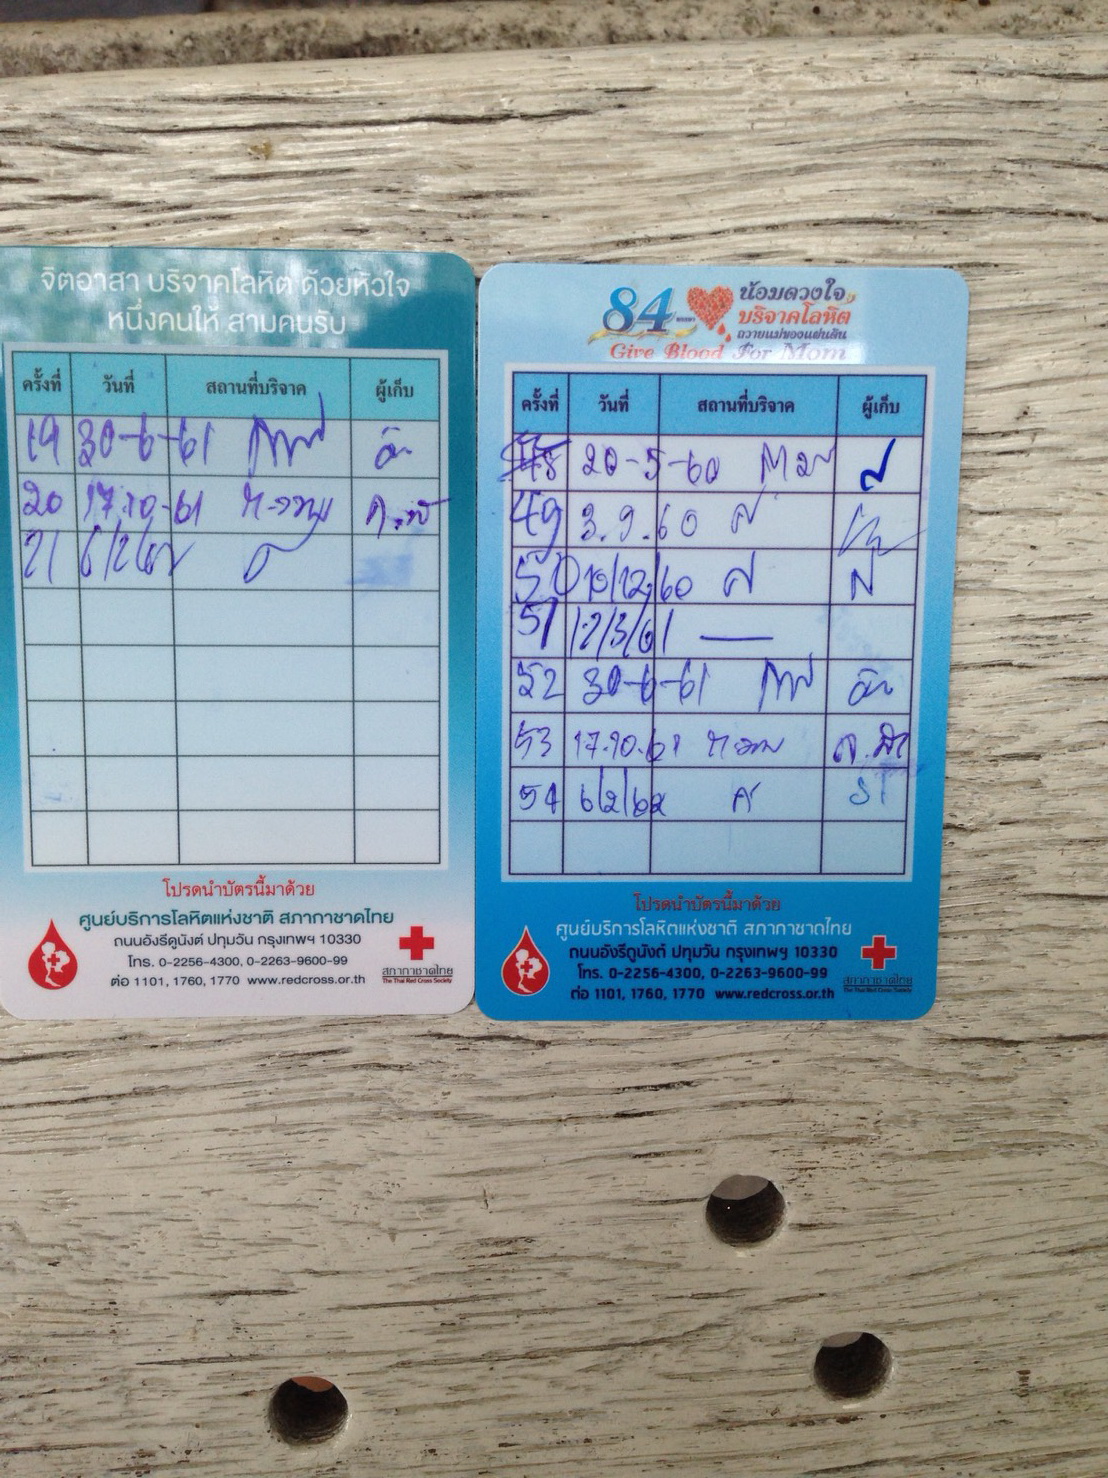 จิตอาสา บริจาคโลหิต ด้วยหัวใจ
หนึ่งคนให้ สามคนรับ
ครั้งที่ วันที่ สถานที่บริจาค ผู้เก็บ
19 30-6-61
20 17.10.61
21 6/2/62
โปรดนำบัตรนี้มาด้วย
ศูนย์บริการโลหิตแห่งชาติ สภากาชาดไทย
ถนนอังรีดูนังต์ ปทุมวัน กรุงเทพฯ 10330
โทร. 0-2256-4300, 0-2263-9600-99
ต่อ 1101, 1760, 1770 www.redcross.or.th
สภากาชาดไทย
The Thai Red Cross Society
84 พรรษา น้อมดวงใจ
บริจาคโลหิต
ถวายแม่ของแผ่นดิน
Give Blood For Mom
ครั้งที่ วันที่ สถานที่บริจาค ผู้เก็บ
48 20-5-60
49 3.9.60
50 10/12/60
51 12/3/61
52 30-6-61
53 17.10.61
54 6/2/62
โปรดนำบัตรนี้มาด้วย
ศูนย์บริการโลหิตแห่งชาติ สภากาชาดไทย
ถนนอังรีดูนังต์ ปทุมวัน กรุงเทพฯ 10330
โทร. 0-2256-4300, 0-2263-9600-99
ต่อ 1101, 1760, 1770 www.redcross.or.th
สภากาชาดไทย
The Thai Red Cross Society